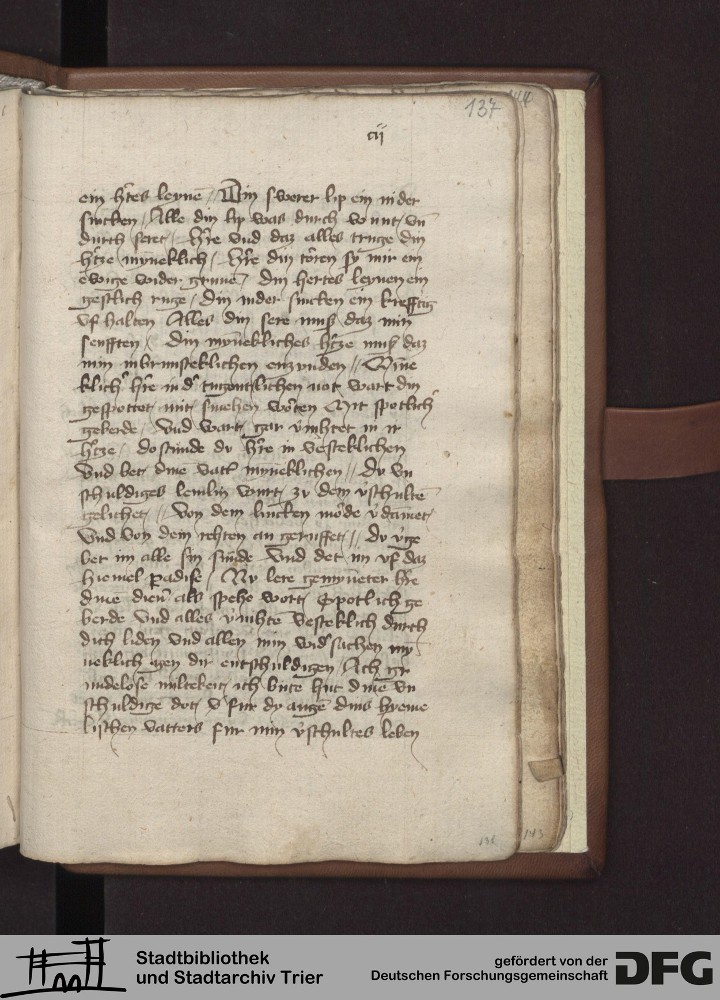 137
cij
ein h'tes leynē // Din swerer lip ein nider
sincken / Alle din lip was durch wunt / vn̄
durch seret / h're vnd daz alles truge din
h'tze myneklich / h're din tôren sy mir ein
ewige wider grunē / din hertes leynen ein
geistlich ruge / Din nider sincken ein krefftig
vf halten Alles din sere muß daz min
senfften / din mynekliches h'tze muß daz
min inbrunsteklichen enzunden // Mine
klich' h're in d' tugentlichen not wart din
gespottet / mit smehen wôrten Mit spotlich'
geberde / vnd wart gar v'nihtet in ir
h'tze / do stunde du h're in vesteklichen
vnd bet dine vatt' myneklichen // Du vn
schuldiges lemlin wurt zu dem v'schultē
gelichet // von dem lincken môrde v'damet /
vnd von dem rehten an geruffet // Du v'ge
bet im alle sin sunde vnd det im vf daz
himel padise / Nu lere geminneter h're
dinē dien' als spehe wort / Spotlich ge
berde vnd alles v'nihtē vesteklich durch
dich liden vnd allen min wid'sachen my
neklich gen dir entschuldigen / Ach gr
undelose miltekeit ich büte hut dinē vn
schuldige dot / v' fur dy augē dins hyeme
lischen vatters fur min v'schultes leben
136
143
Stadtbibliothek
und Stadtarchiv Trier
gefördert von der
Deutschen Forschungsgemeinschaft
DFG